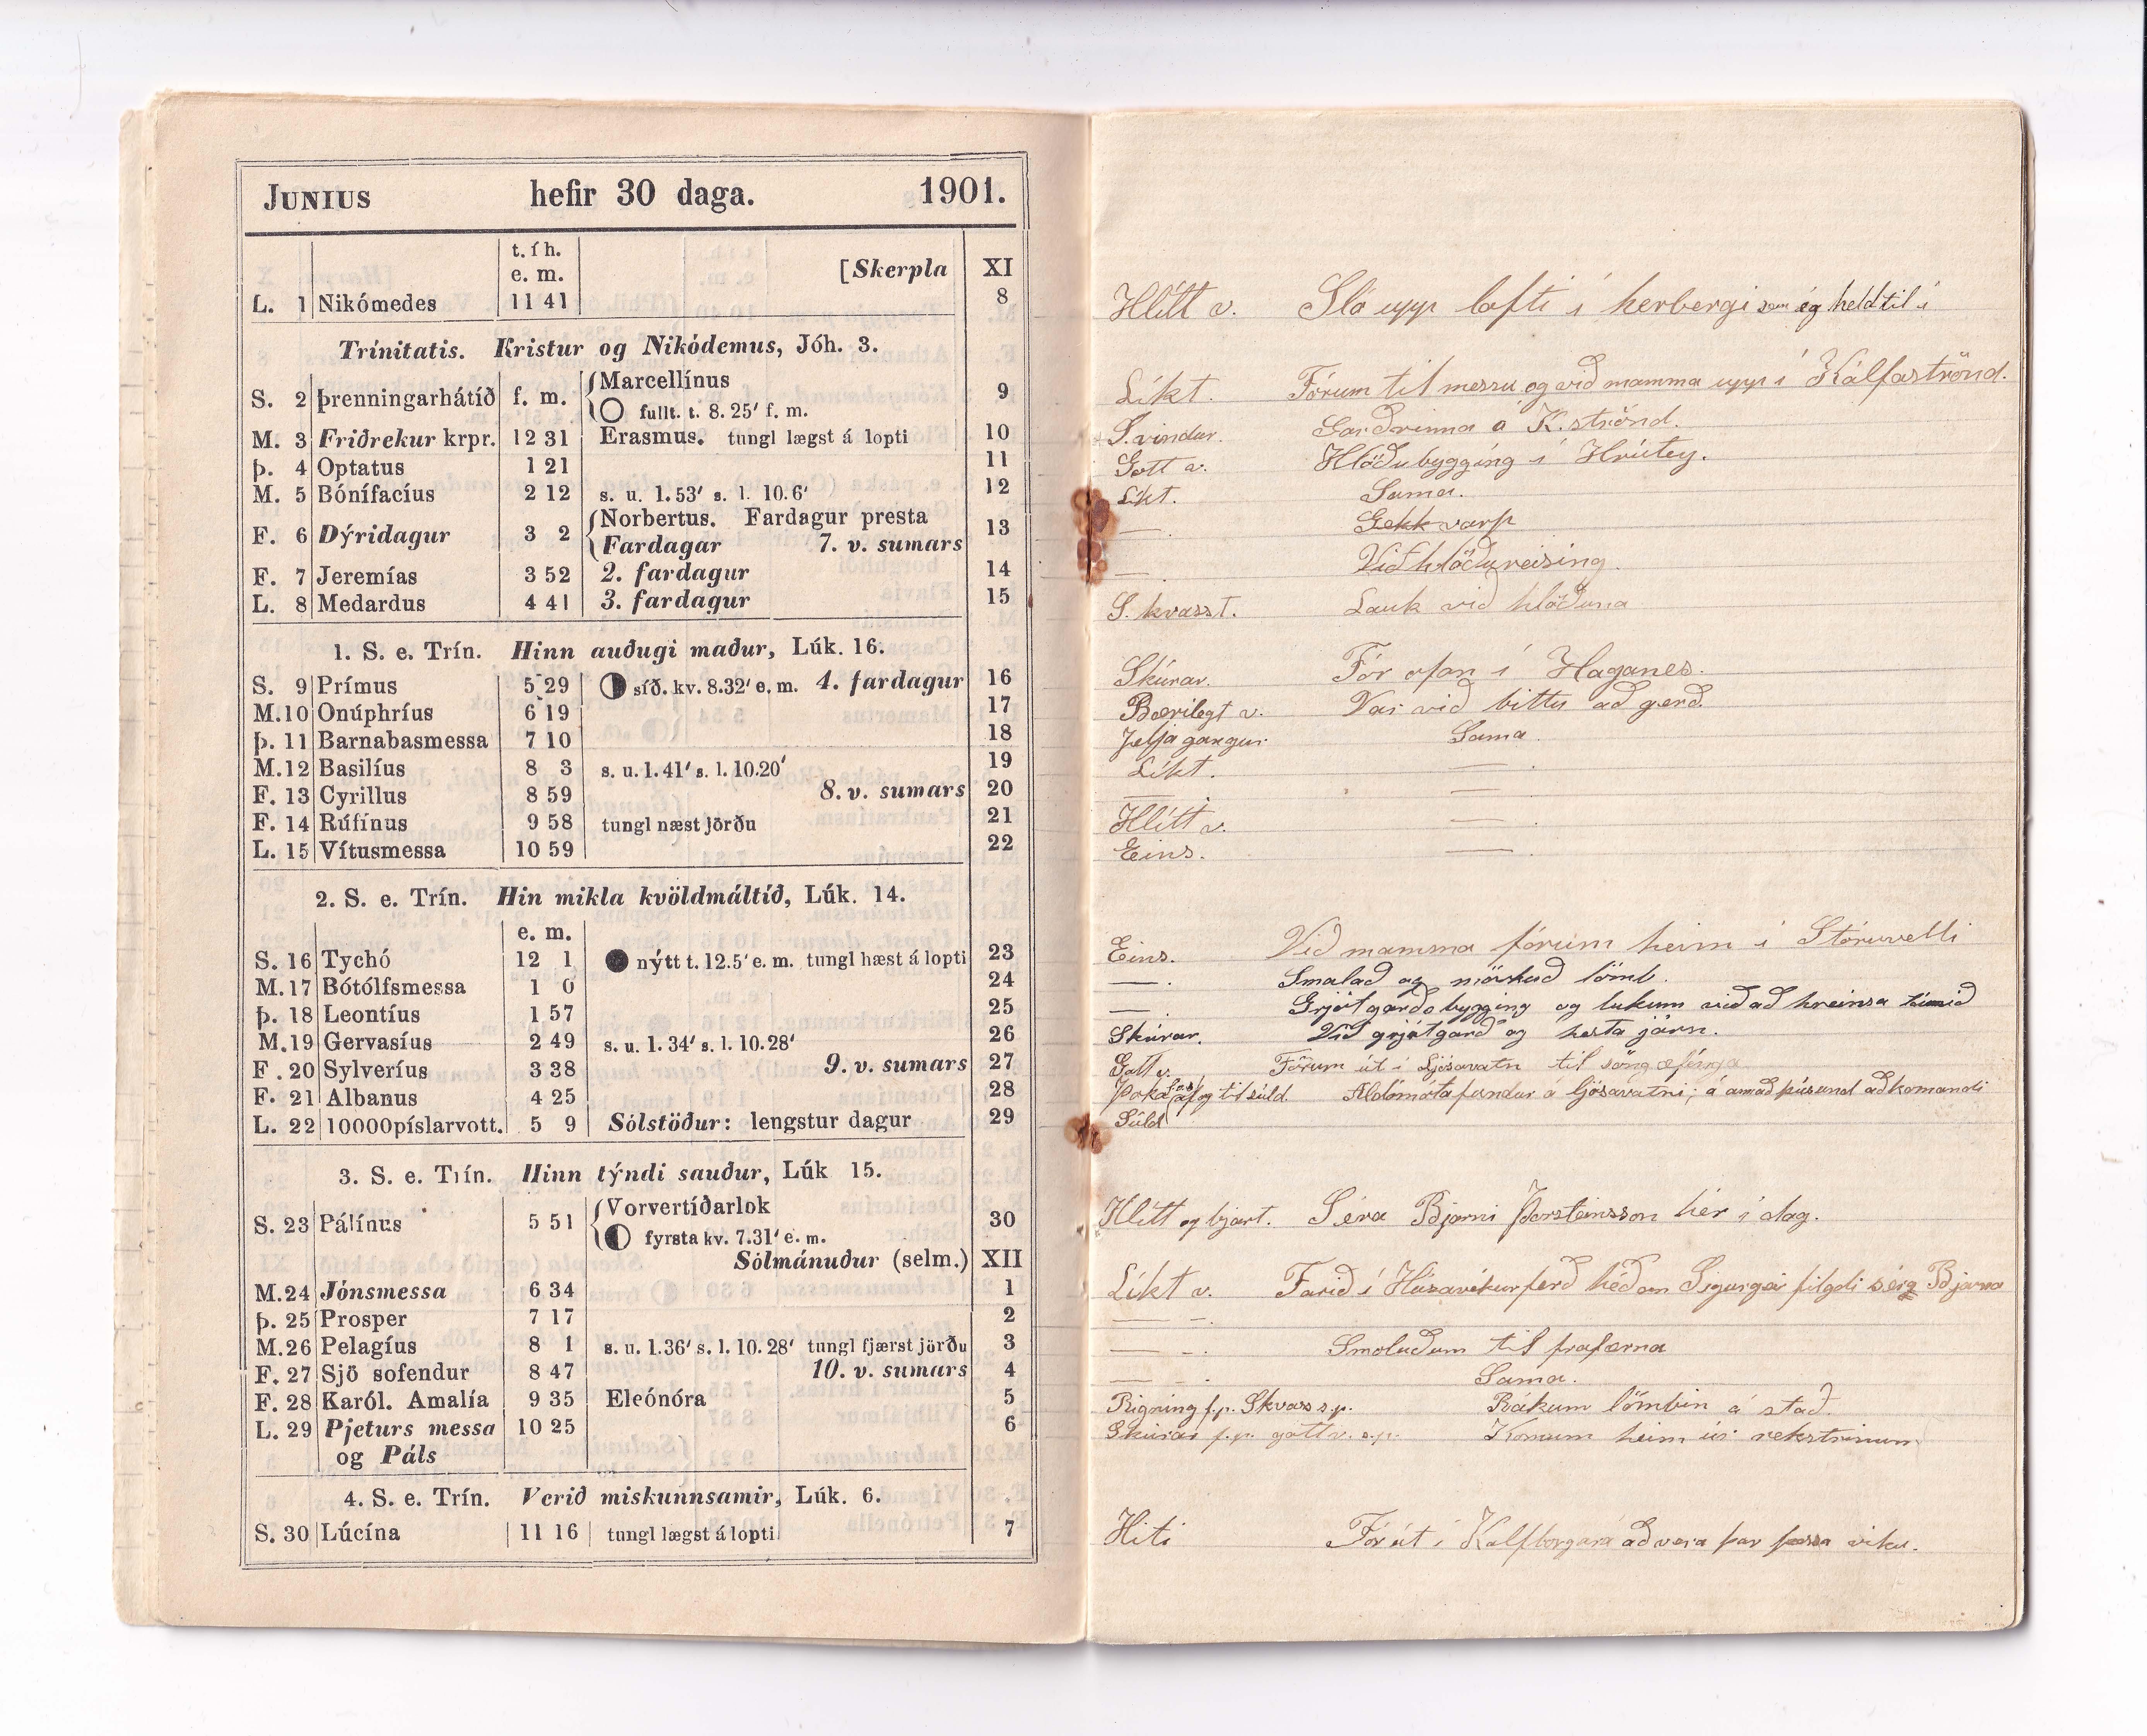 JUNIUS hefir 30 daga. 1901.
t. í h.
e. m. [Skerpla XI
L. 1 Nikómedes 11 41 8
Trínitatis. Kristur og Nikódemus, Jóh. 3.
S. 2 Þrenningarhátíð f. m. Marcellínus 9
fullt. t. 8. 25' f. m.
M. 3 Friðrekur krpr. 12 31 Erasmus. tungl lægst á lopti 10
Þ. 4 Optatus 1 21 11
M. 5 Bónífacíus 2 12 s. u. 1.53' s. l. 10.6' 12
F. 6 Dýridagur 3 2 Norbertus. Fardagur presta 13
Fardagar 7. v. sumars
F. 7 Jeremías 3 52 2. fardagur 14
L. 8 Medardus 4 41 3. fardagur 15
1. S. e. Trín. Hinn auðugi maður, Lúk. 16.
S. 9 Prímus 5 29 síð. kv. 8.32' e. m. 4. fardagur 16
M. 10 Onúphríus 6 19 17
Þ. 11 Barnabasmessa 7 10 18
M. 12 Basilíus 8 3 s. u. 1.41' s. l. 10.20' 19
F. 13 Cyrillus 8 59 8. v. sumars 20
F. 14 Rúfínus 9 58 tungl næst jörðu 21
L. 15 Vítusmessa 10 59 22
2. S. e. Trín. Hin mikla kvöldmáltíð, Lúk. 14.
e. m.
S. 16 Tychó 12 1 nýtt t. 12.5' e. m. tungl hæst á lopti 23
M. 17 Bótólfsmessa 1 0 24
Þ. 18 Leontíus 1 57 25
M. 19 Gervasíus 2 49 s. u. 1. 34' s. l. 10.28' 26
F. 20 Sylveríus 3 38 9. v. sumars 27
F. 21 Albanus 4 25 28
L. 22 10000píslarvott. 5 9 Sólstöður: lengstur dagur 29
3. S. e. Trín. Hinn týndi sauður, Lúk 15.
S. 23 Pálínus 5 51 Vorvertíðarlok 30
fyrsta kv. 7.31' e. m.
Sólmánuður (selm.) XII
M. 24 Jónsmessa 6 34 1
Þ. 25 Prosper 7 17 2
M. 26 Pelagíus 8 1 s. u. 1.36' s. l. 10. 28' tungl fjærst jörðu 3
F. 27 Sjö sofendur 8 47 10. v. sumars 4
F. 28 Karól. Amalía 9 35 Eleónóra 5
L. 29 Pjeturs messa 10 25 6
og Páls
4. S. e. Trín. Verið miskunnsamir, Lúk. 6.
S. 30 Lúcína 11 16 tungl lægst á lopti 7
Hlítt v. Sló upp lofti í herbergi sem ég held til í
Líkt. Fórum til messu og við mamma upp í Kálfaströnd.
S. vindur. Garðvinna á K. strönd.
Gott v. Hlöðubygging í Hrútey.
Líkt. Sama.
— . Gekk varp
— . Við hlöðureising.
S. kvasst. Lauk við hlöðuna
Skúrav. Fór ofan í Haganes.
Bærilegt v. Var við bittu að gerð.
Jelja gangur. Sama.
Líkt. — .
— . — .
Hlítt v. — .
Eins. — .
Eins. Við mamma fórum heim í Stóruvelli
— . Smalað og mörkuð lömb.
— . Grjótgarðsbygging og lukum við að hreinsa túnið
Skúrav. Við grjótgarð og hesta járn.
Gott v. Fórum út í Ljósavatn til söng æfínga
Þoka og til súld. Aldómóta fundur á Ljósavatni; á annað þúsund aðkomandi
Súld
Hlítt og bjart. Séra Bjarni Þorsteinsson hér í dag.
Líkt v. Farið í Húsavíkurferð héðan Sigurgeir filgdi séra Bjarna
— - .
— - . Smöluðum til fráfærna
— - . Sama.
Rigning f.p. Skvass s.p. Rákum lömbin á stað.
Skúrar f.p. gott v. s.p. Komum heim úr rekstrinum.
Hiti Fór út í Kálfborgará að vera þar þessa viku.